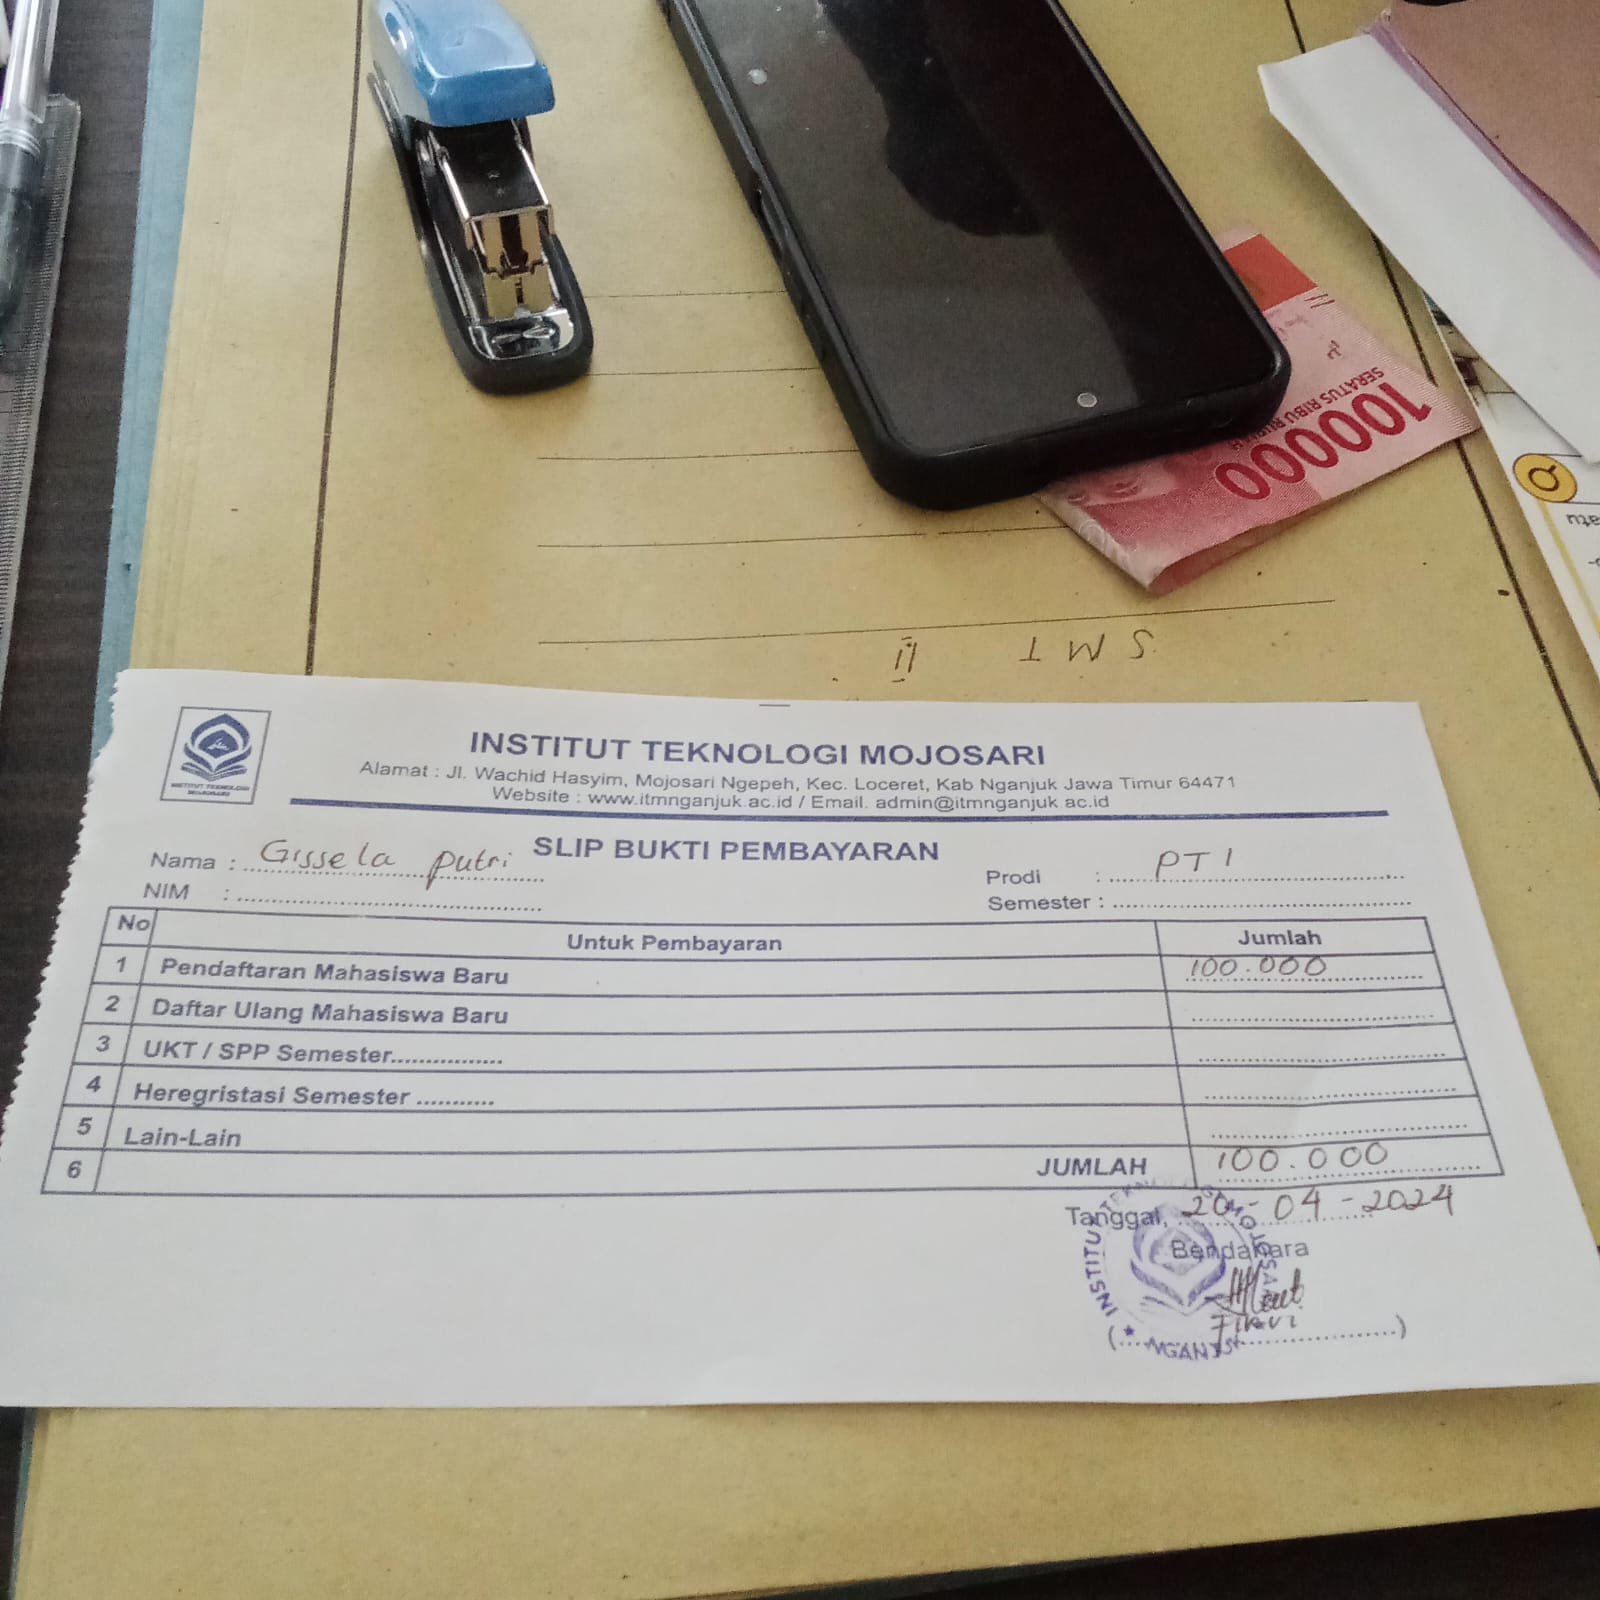 100000
SERATUS RIBU RUPIAH
SMT II
INSTITUT TEKNOLOGI MOJOSARI
INSTITUT TEKNOLOGI MOJOSARI
Alamat : Jl. Wachid Hasyim, Mojosari Ngepeh, Kec. Loceret, Kab Nganjuk Jawa Timur 64471
Website : www.itmnganjuk.ac.id / Email. admin@itmnganjuk.ac.id
SLIP BUKTI PEMBAYARAN
Nama : Gissela putri
Prodi : PTI
NIM : ........................................
Semester : ........................................
No Untuk Pembayaran Jumlah
1 Pendaftaran Mahasiswa Baru 100.000
2 Daftar Ulang Mahasiswa Baru
3 UKT / SPP Semester.................
4 Heregristasi Semester ...........
5 Lain-Lain
6 JUMLAH 100.000
Tanggal, 20-04-2024
Bendahara
INSTITUT TEKNOLOGI MOJOSARI
NGANJUK